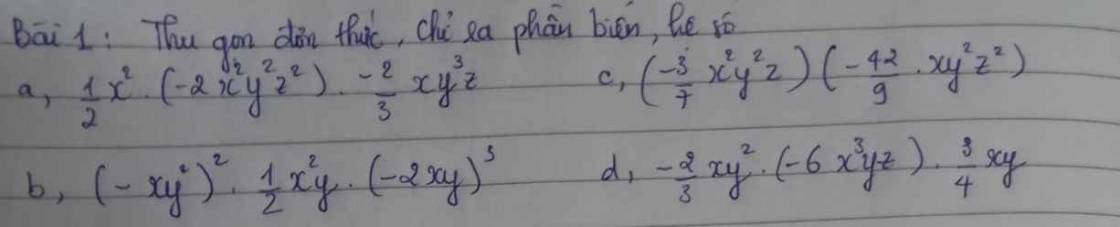 Bài 1: Thu gọn đơn thức, chỉ ra phần biến, hệ số
a, \frac{1}{2}x^2.(-2x^2y^2z^2).\frac{-2}{3}xy^3z c, (\frac{-3}{7}x^2y^2z)(-\frac{42}{9}.xy^2z^2)
b, (-xy^2)^2.\frac{1}{2}x^2y.(-2xy)^3 d, -\frac{2}{3}xy^2.(-6x^3yz).\frac{3}{4}xy